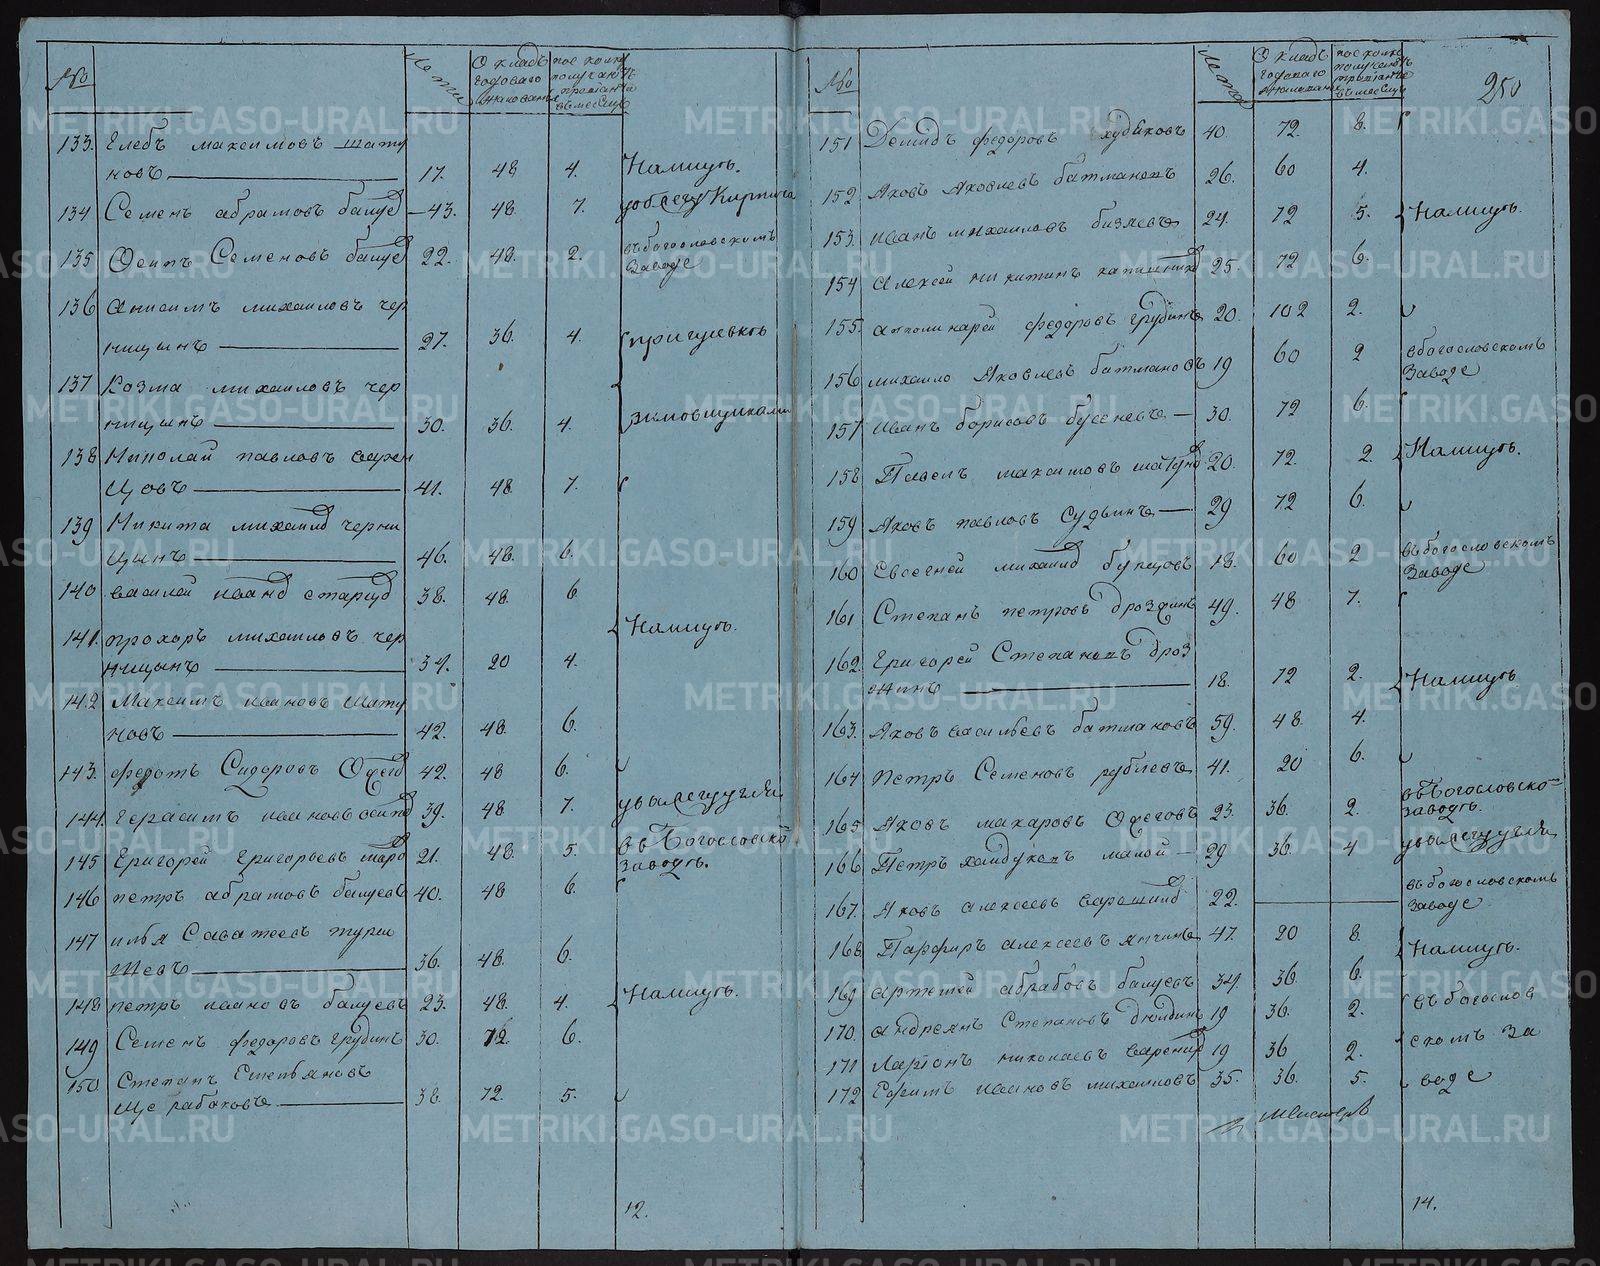 №
лета
Окладъ
годоваго
жалованья
поскольку
получаютъ
провiанта
въ месяцъ
133. Глебъ максимовъ шату
новъ 17. 48 4. Налицъ.
134 Семенъ абрамовъ балуев 43. 48. 7. убегу Кирпича
135 Осипъ Семеновъ балуев 22. 48. 2. въ богословскомъ
Заводе
136 Анисимъ михаиловъ чер
ницынъ 27. 36. 4. при гулевкъ
137 Козма михаиловъ чер
ницынъ 30. 36. 4. зимовщиками
138 Николай павловъ
цовъ 41. 48 7.
139 Никита михаилов черни
цынъ 46. 48. 6.
140 василей иванов старцов 38. 48. 6
141. прохоръ михаиловъ чер Налицъ.
ницынъ 34. 20 4.
142 Максимъ ивановъ шату
новъ 42. 48. 6.
143. федотъ Сидоровъ 42. 48 6.
144. герасимъ ивановъ осипов 39. 48 7. увыжегу угля
145 Григорей григорьевъ 21. 48. 5. въ Богословско
Заводъ.
146 петръ абрамовъ балуевъ 40. 48 6.
147 илья Саватеевъ турш
шевъ 36. 48. 6.
148 петръ ивановъ балуевъ 23. 48. 4. Налицъ.
149 Семенъ федоровъ грудинъ 30. 72. 6.
150 Степанъ Емельяновъ
Щербаковъ 38. 72. 5.
12.
№
лета
Окладъ
годоваго
жалованья
поскольку
получаютъ
провiанта
въ месяцъ
250
151 Демидъ федоровъ худяковъ 40. 72. 8.
152 Яковъ Яковлевъ батмановъ 26. 60 4.
153. иванъ михаиловъ бизяевъ 24. 72 5. Налицъ.
154 Алексей никитинъ 25. 72 6.
155. аполинарей федоровъ грудинъ 20. 102 2.
156 михаило Яковлевъ батмановъ 19 60 2 вбогословскомъ
Заводе
157 Иванъ борисовъ бусеневъ 30. 72 6.
158 Павелъ максимовъ шатунов 20. 72. 2. Налицъ.
159 Яковъ павловъ Судвинъ 29 72 6.
160 Евсегней михаилов бунцовъ 18. 60 2 въ богословскомъ
Заводе
161 Степанъ петровъ дрозжинъ 49. 48 7.
162. Григорей Степановъ дроз
жинъ 18. 72 2. Налицъ
163. Яковъ васильевъ батмановъ 59. 48. 4.
164 Петръ Семеновъ рублевъ 41. 20 6.
165. Яковъ макаровъ Ожеговъ 23. 36. 2. въ Богословско-
заводъ.
166 Петръ хайдуковъ малой 29 36. 4 увыжегу угля
167. Яковъ алексеевъ 22. въ богословскомъ
Заводе
168. Парфиръ алексеевъ янчинъ 47. 20 8. Налицъ.
169 Артемей абрабовъ балуевъ 34. 36 6.
170. Андреянъ Степановъ дюлдинъ 19 36. 2. въ богослов
171 Ларiонъ николаевъ 19 36 2. скомъ за
172 Ефимъ ивановъ михаиловъ 35. 36. 5. воде
14.